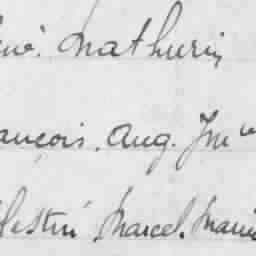 né. Mathurin
ançois. Aug. Jm
lestin Marcel. Marie